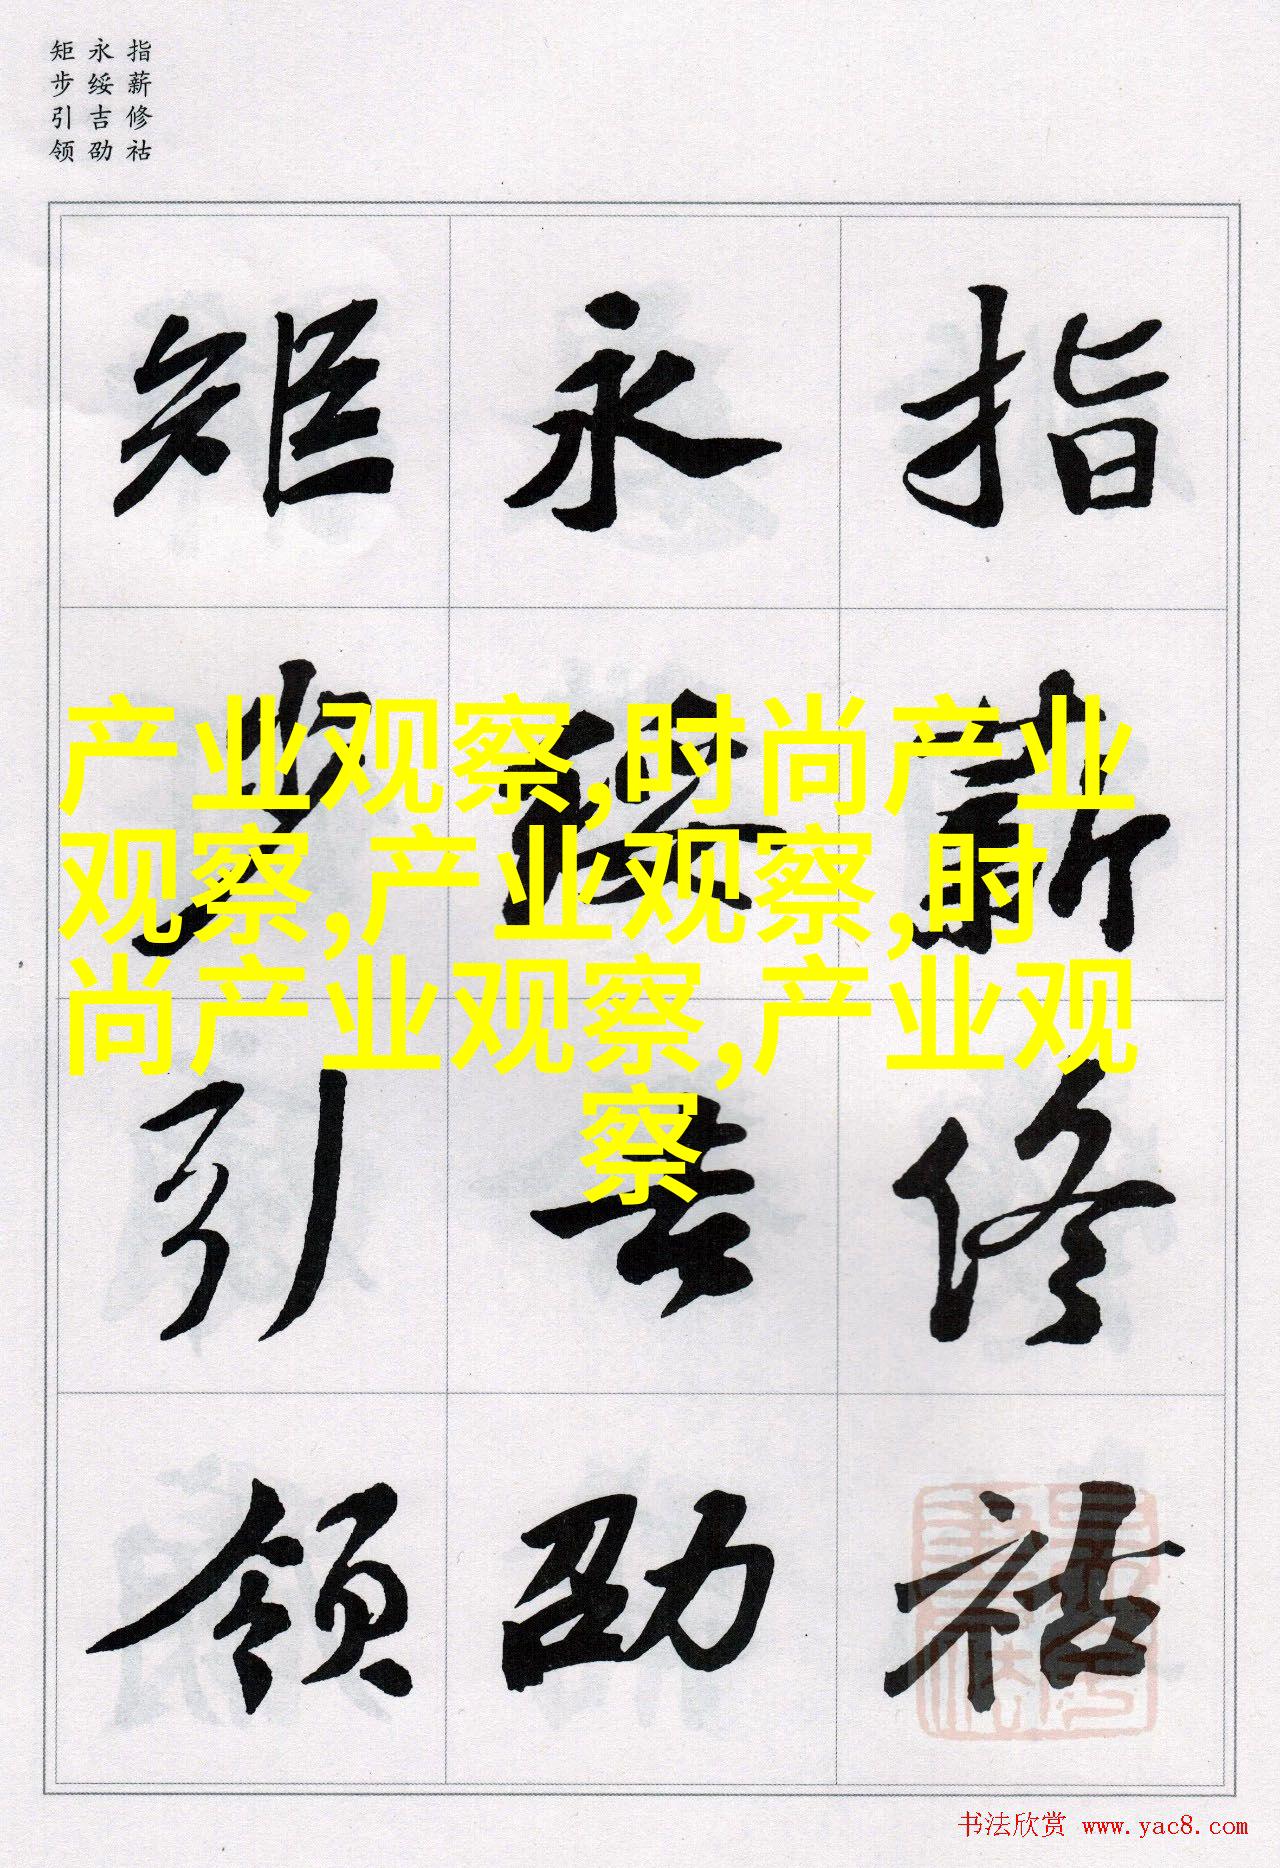 指薪修祜
永绥吉劭
矩步引领
指薪修祜
永绥吉劭
矩步引领
产业观察,时尚产业
观察,产业观察,时
尚产业观察,产业观
察
书法欣赏 www.yac8.com